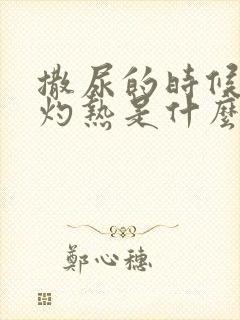 撒尿的時候
灼熱是什麼
鄭心穗